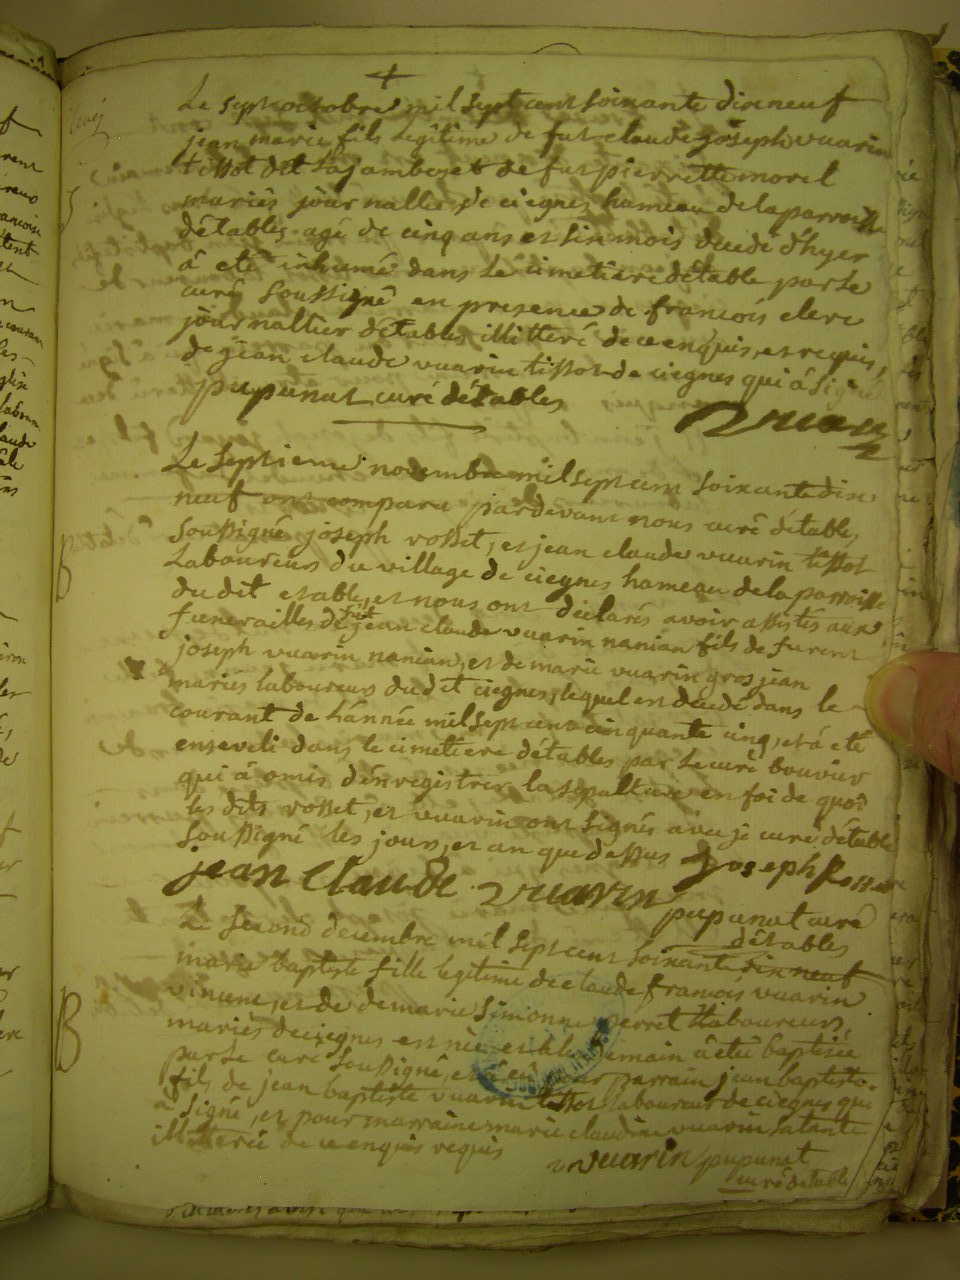 Le sept octobre mil sept cent soixante dix neuf
jean marie fils legitime de fut claude joseph vuarin
tissot dit Lajambe, et de fut pierrette morel
mariés journallier de ciegnes hameau de la parroisse
détables agé de cinq ans et six mois decedé d'hyer
à eté inhumé dans le cimetiere détable par le
curé soussigné en presence de francois clerc
journallier détables illitteré de ce enquis, et requis,
de jean claude vuarin tissot de ciegnes qui à signé
pupunat curé détables
Le septieme novembre mil sept cent soixante dix
neuf ont comparu pardevant nous curé détables
soussigné joseph rosset, et jean claude vuarin tissot
Laboureurs du village de ciegnes hameau de la parroisse
du dit etable, et nous ont déclarés avoir assistés aux
funerailles de fut jean claude vuarin nanian fils de furent
joseph vuarin nanian, et de marie vuarin gros jean
mariés laboureurs dudit ciegnes, lequel est decedé dans le
courant de l'année mil sept cent cinquante cinq, et à eté
enseveli dans le cimetiere détables par le curé bouvier
qui à omis d'enregistrer la sepulture en foi de quoi
les dits rosset, et vuarin ont signés avec je curé détable
soussigné les jour, et an que dessus Joseph Rosset
jean Claude vuarin
pupunat curé
détables
Le second decembre mil sept cent soixante dix neuf
marie baptiste fille legitime de claude francois vuarin
et de demarie simonne perret Laboureurs,
mariés de ciegnes est née et le lemain à eté baptisée
par le curé soussigné, et à eu pour parrain jean baptiste
fils de jean baptiste vuarin tissot laboureur de ciegnes qui
à signé, et pour marraine marie claudine vuarin sa tante
illitterée de ce enquis requis
vuarin pupunat
curé détable